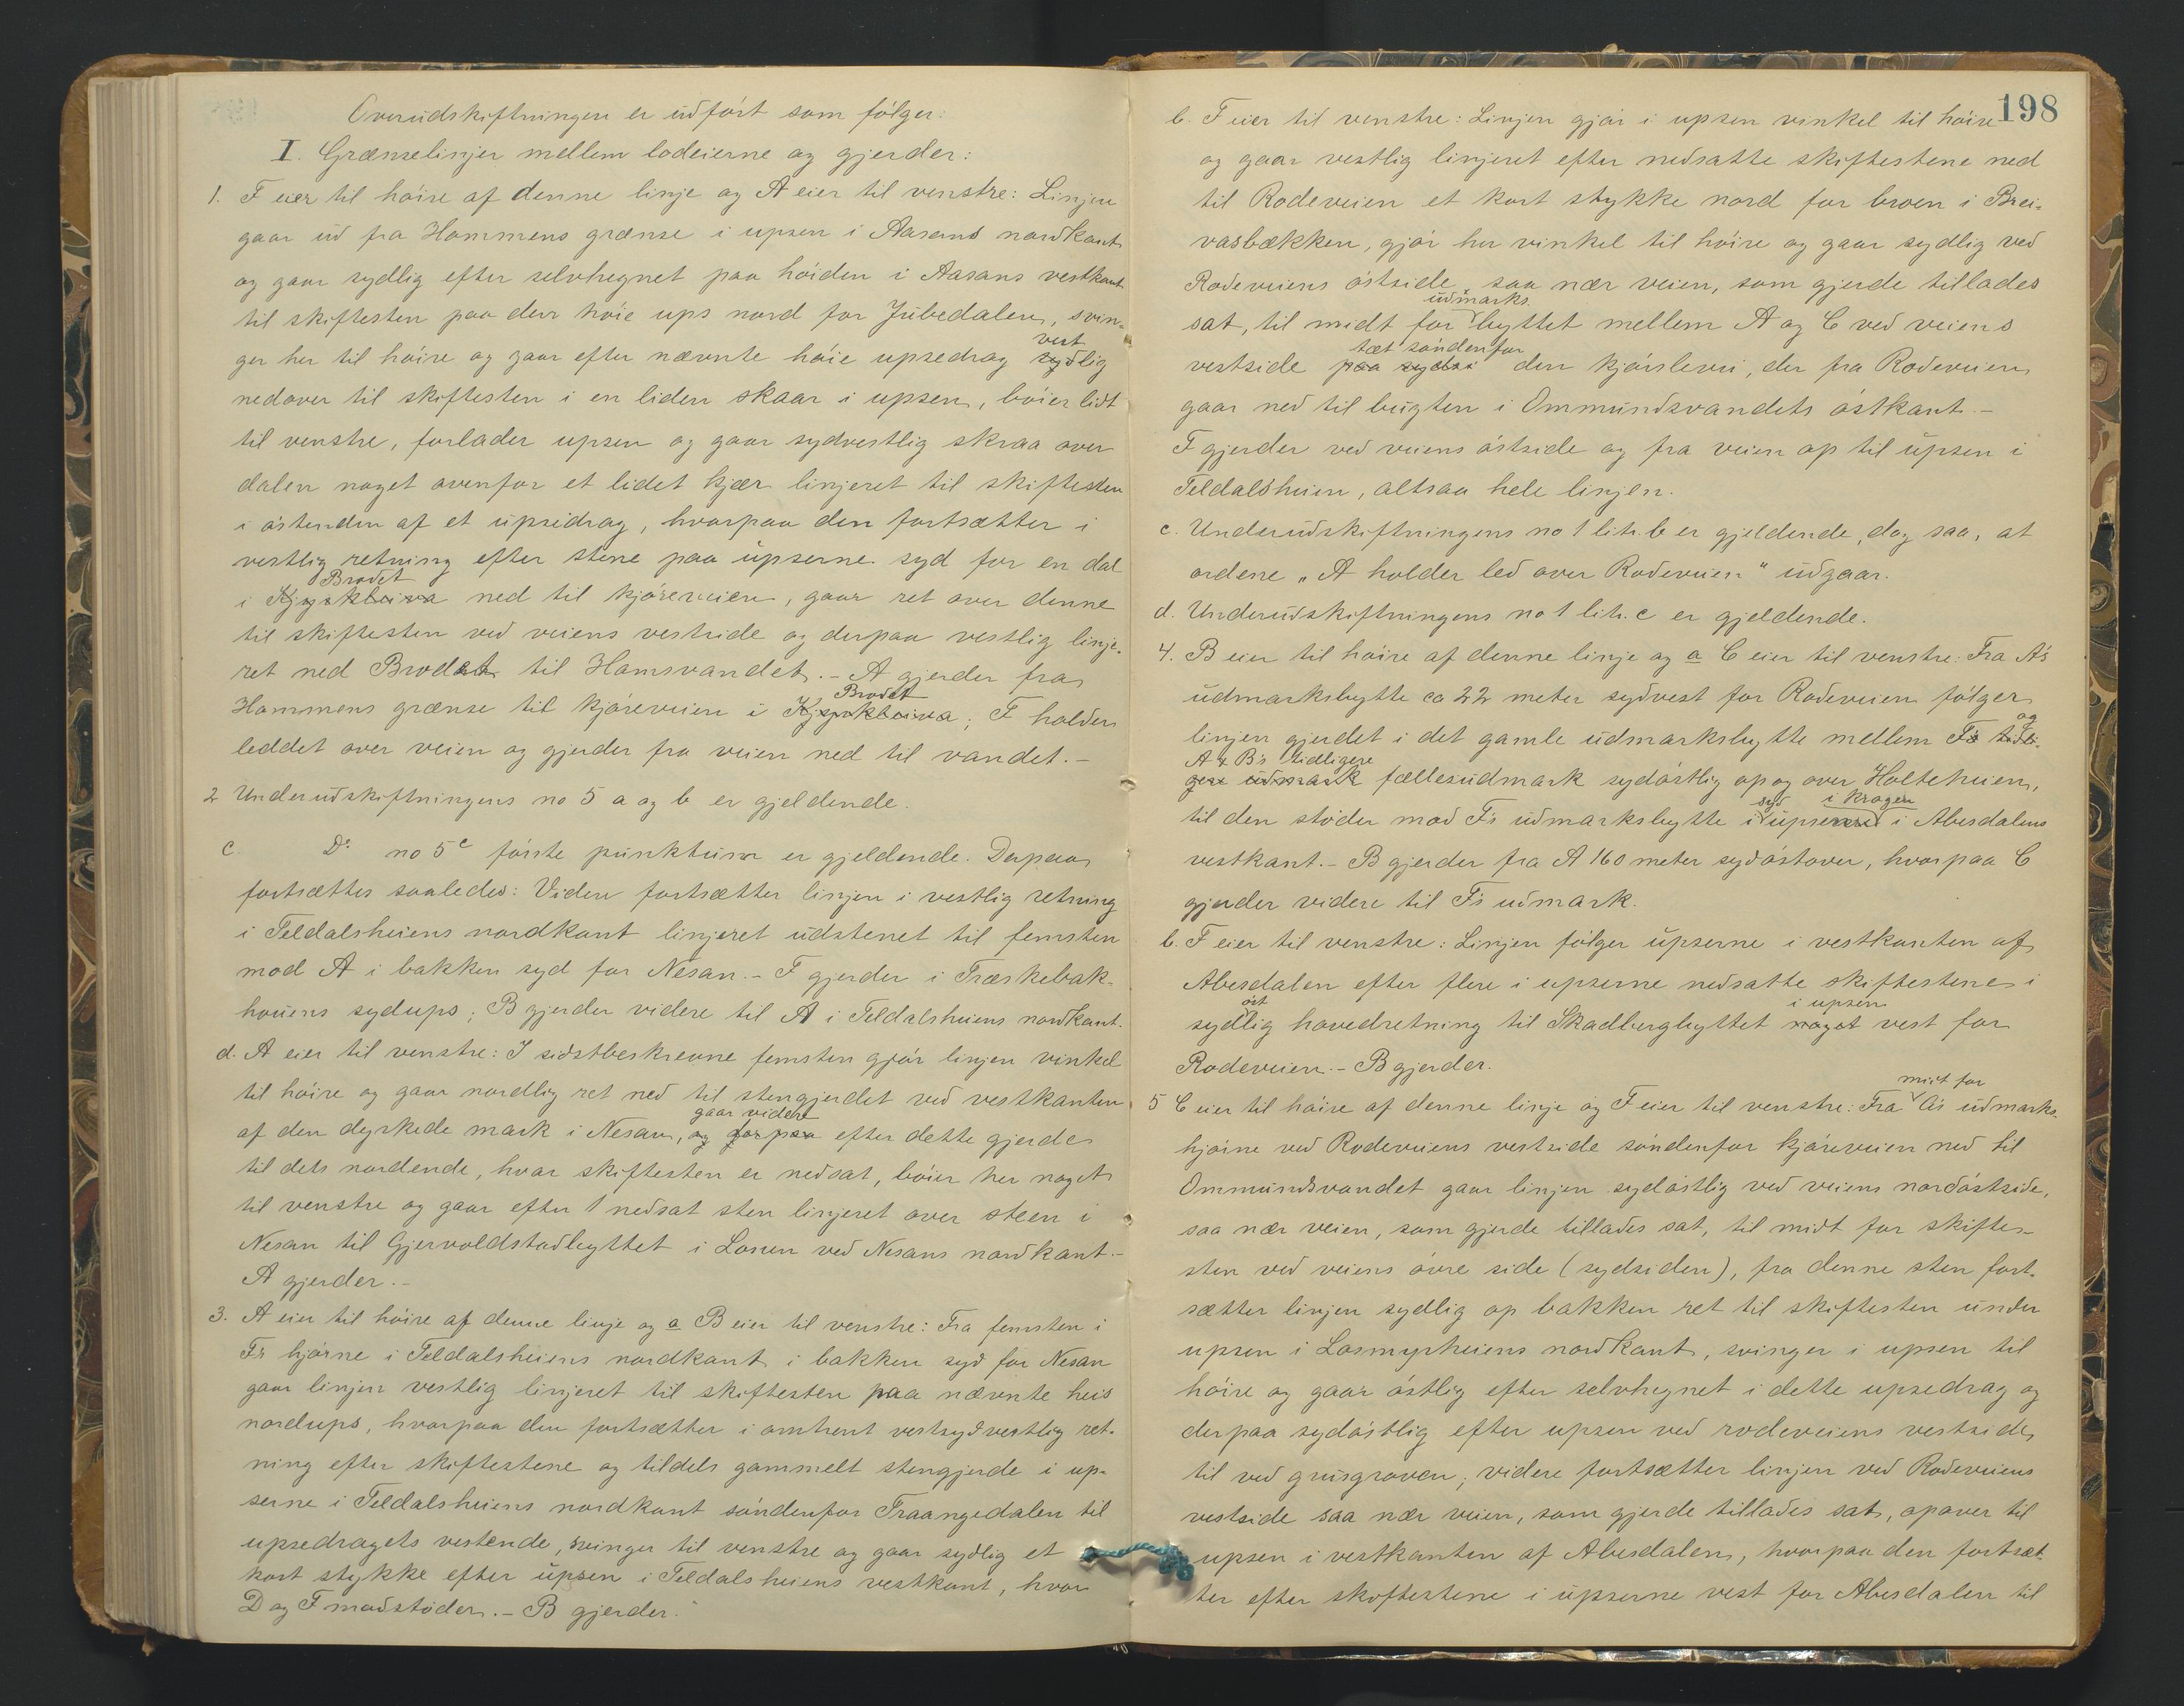 Overudskiftningen er udført som følger:
I. Grænselinjer mellem lodeierne og gjerder:
1. F eier til høire af denne linje og A eier til venstre: Linjen
gaar ud fra Hommens grænse i upsen i Aasans nordkant
og gaar sydlig efter selvhegnet paa høiden i Aasans vestkant
til skiftesten paa den høie ups nord for Jubedalen, svin-
ger her til høire og gaar efter nævnte høie upsedrag sydlig vest
nedover til skiftesten i en liden skaar i upsen, bøier lidt
til venstre, forlader upsen og gaar sydvestlig skraa over
dalen noget ovenfor et lidet kjær linjeret til skiftesten
i østenden af et upsedrag, hvorpaa den fortsætter i
vestlig retning efter stene paa upserne syd for en dal
i Brodet ned til kjøreveien, gaar ret over denne
til skiftesten ved veiens vestside og derpaa vestlig linje-
ret ned Brodet til Homsvandet. - A gjerder fra
Hommens grænse til kjøreveien i Brodet; F holder
leddet over veien og gjerder fra veien ned til vandet. -
2 Underudskiftningens no 5 a og b er gjeldende.
c. Do no 5c første punktum er gjeldende. Derpaa
fortsættes saaledes: Videre fortsætter linjen i vestlig retning
i Teldalsheiens nordkant linjeret udstenet til femsten
mod A i bakken syd for Nesan. - F gjerder i Træskebak-
houens sydups; B gjerder videre til A i Teldalsheiens nordkant.
d. A eier til venstre: I sidstbeskrevne femsten gjør linjen vinkel
til høire og gaar nordlig ret ned til stengjerdet ved vestkanten
af den dyrkede mark i Nesan, og gaar videre efter dette gjerde
til dets nordende, hvor skiftesten er nedsat, bøier her noget
til venstre og gaar efter 1 nedsat sten linjeret over steen i
Nesan til Gjervoldstadbyttet i Lonen ved Nesans nordkant. -
A gjerder. -
3. A eier til høire af denne linje og a B eier til venstre: Fra femsten i
F's hjørne i Teldalsheiens nordkant i bakken syd for Nesan
gaar linjen vestlig linjeret til skiftesten paa nævnte heis
nordups, hvorpaa den fortsætter i omtrent vestsydvestlig ret-
ning efter skiftestene og tildels gammelt stengjerde i up-
serne i Teldalsheiens nordkant søndenfor Traangedalen til
upsedragets vestende, svinger til venstre og gaar sydlig et
kort stykke efter upsen i Teldalsheiens vestkant, hvor
D og F modstøder. - B gjerder.
198
b. F eier til venstre: Linjen gjør i upsen vinkel til høire
og gaar vestlig linjeret efter nedsatte skiftestene ned
til Rodeveien et kort stykke nord for broen i Brei-
vasbækken, gjør her vinkel til høire og gaar sydlig ved
Rodeveiens østside, saa nær veien, som gjerde tillades
sat, til midt for udmarks byttet mellem A og C ved veiens
vestside paa sydsi tæt søndenfor den kjørslevei, der fra Rodeveien
gaar ned til bugten i Ommundsvandets østkant. -
F gjerder ved veiens østside og fra veien op til upsen i
Teldalsheien, altsaa hele linjen.
c. Underudskiftningens no 1 litr. b er gjeldende, dog saa, at
ordene „A holder led over Rodeveien" udgaar.
d. Underudskiftningens no 1 litr. c er gjeldende.
4. B eier til høire af denne linje og a C eier til venstre: Fra A's
udmarksbytte ca 22 meter sydvest for Rodeveien følger
linjen gjerdet i det gamle udmarksbytte mellem F's tidli- og
gere udmark A & B's tidligere fællesudmark sydøstlig op og over Holteheien,
til den støder mod F's udmarksbytte i syd upsen i krogen i Abesdalens
vestkant. - B gjerder fra A 160 meter sydøstover, hvorpaa C
gjerder videre til F's udmark.
b. F eier til venstre: Linjen følger upserne i vestkanten af
Abesdalen efter flere i upserne nedsatte skiftestene i
sydøstlig hovedretning til Skadbergbyttet noget i upsen vest for
Rodeveien. - B gjerder.
5 C eier til høire af denne linje og F eier til venstre: Fra midt for A's udmarks-
hjørne ved Rodeveiens vestside søndenfor kjøreveien ned til
Ommundsvandet gaar linjen sydøstlig ved veiens nordøstside,
saa nær veien, som gjerde tillades sat, til midt for skifte-
sten ved veiens øvre side (sydsiden), fra denne sten fort-
sætter linjen sydlig op bakken ret til skiftesten under
upsen i Losmyrheiens nordkant, svinger i upsen til
høire og gaar østlig efter selvhegnet i dette upsedrag og
derpaa sydøstlig efter upsen ved rodeveiens vestside
til ved grusgroven; videre fortsætter linjen ved Rodeveiens
vestside saa nær veien, som gjerde tillades sat, opover til
upsen i vestkanten af Abesdalen, hvorpaa den fortsæt-
ter efter skiftestene i upserne vest for Abesdalen til